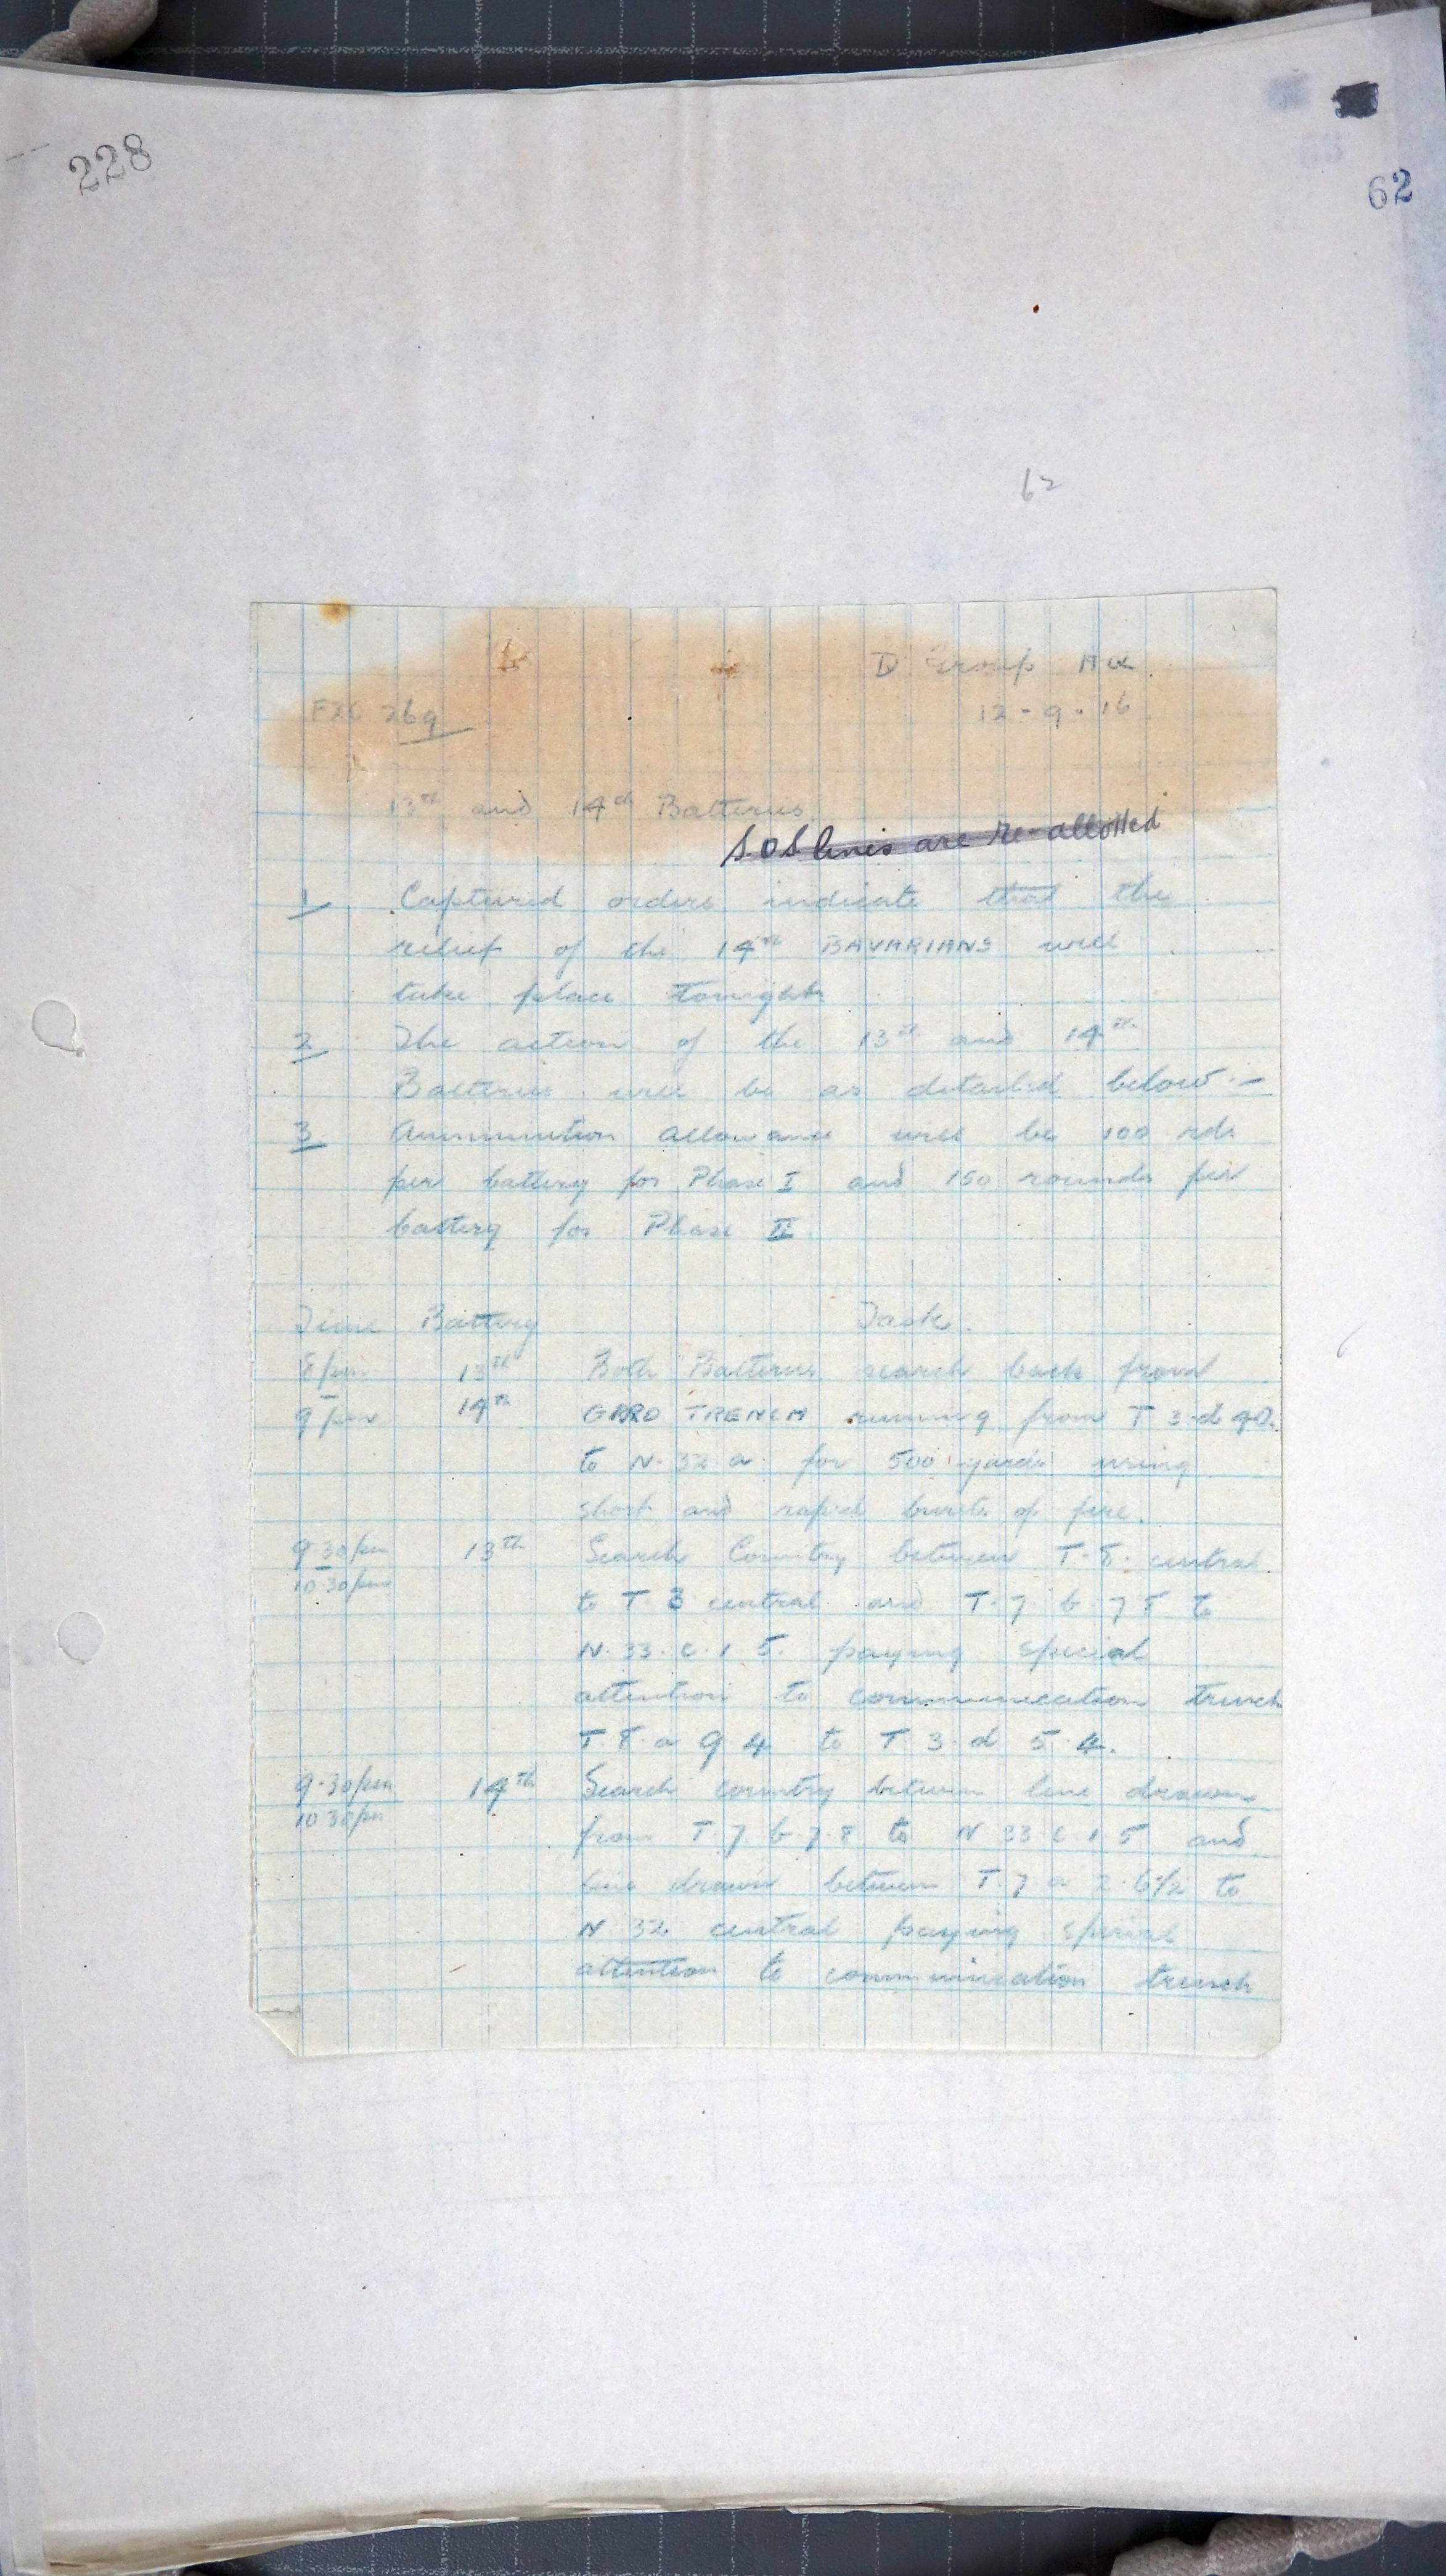 228
62
62
D Group HQ
FZC 269
12-9-16
13th and 14th Batteries
S.O.S lines are Re-allotted
1 Captured orders indicate that the
relief of the 14th BAVARIANS will
take place tonight
2 The action of the 13th and 14th
Batteries will be as detailed below:-
3 Ammunition allowance will be 100 rds
per battery for Phase I and 150 rounds per
battery for Phase II
Time Battery Task.
8 pm 13th Both Batteries search back from
9 pm 14th GIRD TRENCH running from T 3.d 9.0.
to N.32.a for 500 yards using
short and rapid bursts of fire.
9.30 pm 13th Search Country between T.8. central
10.30 pm to T.3 central and T.7.b.7.8 to
N.33.c.1.5. paying special
attention to communication trench
T.8.a 9.4 to T.3.d 5.4.
9.30 pm 14th Search country between line drawn
10.30 pm from T.7.b.7.8 to N 33 c.1.5 and
line drawn between T.7.a 2.6½ to
N 32 central paying special
attention to communication trench